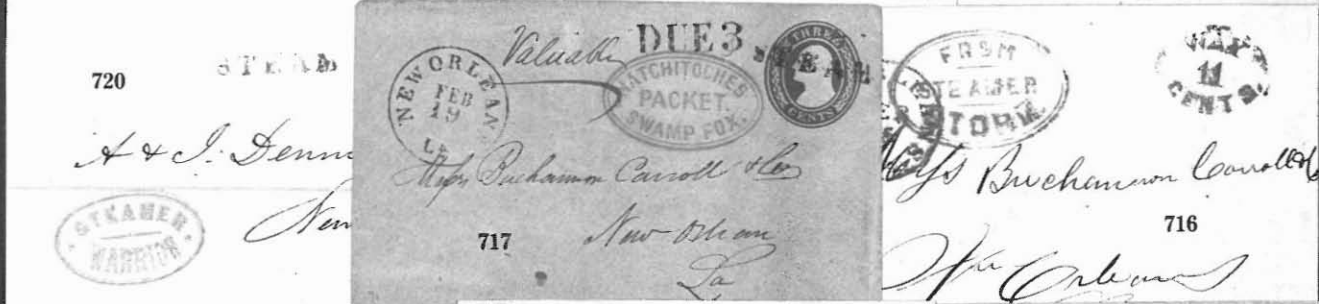 720
STEAM
A & J. Denn
New
STEAMER
WARRIOR
Valuable
DUE 3
NEW ORLEANS
FEB
19
LA
NATCHITOCHES
PACKET.
SWAMP FOX.
THREE
CENTS
STEAM
Messrs Buchannon Carroll & Co
New Orleans
La
717
FROM
STEAMER
STORM
WAY
11
CENTS
Messrs Buchannon Carroll & Co
716
New Orleans